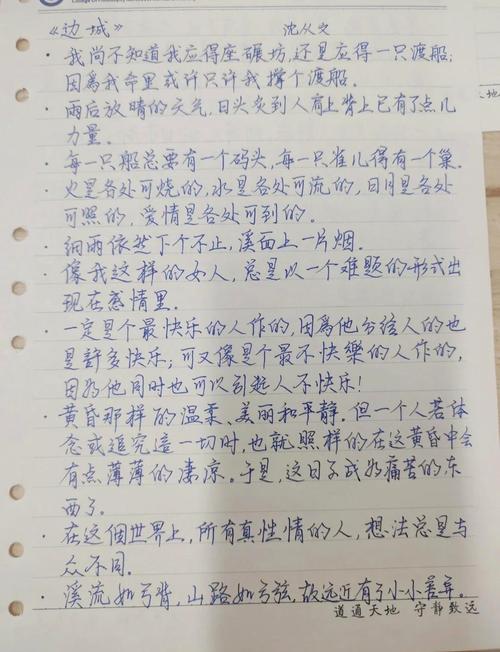 《边城》 沈从文
· 我尚不知道我应得座碾坊,还是应得一只渡船;
因為我命里或许只许我撑个渡船。
· 雨后放晴的天气,日头炙到人肩上背上已有了点儿
力量。
· 每一只船总要有一个码头,每一只雀儿得有一个巢。
· 火是各处可烧的,水是各处可流的,日月是各处
可照的,爱情是各处可到的。
· 细雨依然下个不止,溪面上一片烟。
· 像我这样的女人,总是以一个难题的形式出
现在感情里。
· 一定是个最快乐的人作的,因為他分给人的也
是許多快乐;可又像是个最不快樂的人作的,
因为他同时也可以引起人不快乐!
· 黄昏那样的温柔、美丽和平静.但一个人若体
念或追究這一切时,也就照样的在这黄昏中会
有点薄薄的凄凉.于是,这日子成为痛苦的东
西了.
· 在這個世界上,所有真性情的人,想法总是与
众不同.
· 溪流如弓背,山路如弓弦,故远近有了小小差异.
道通天地 守静致远